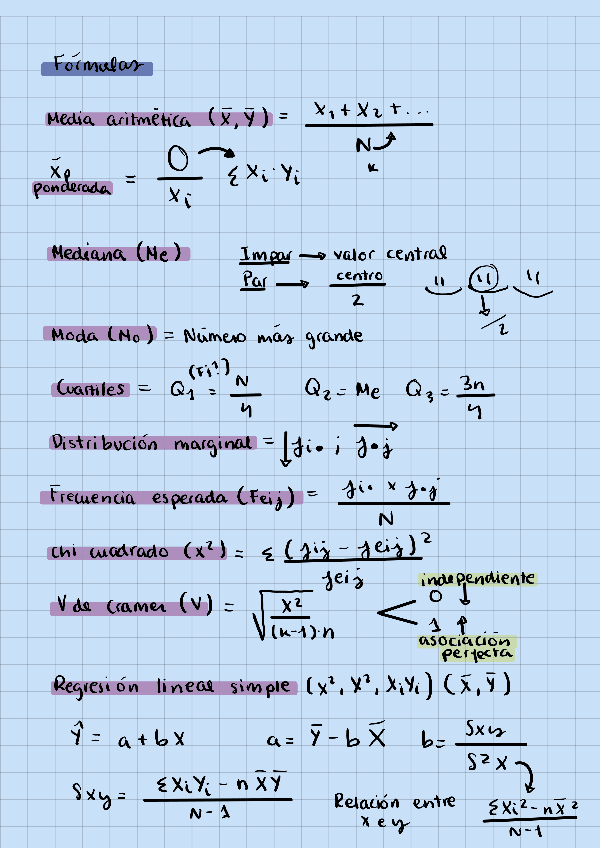 Fórmulas
Media aritmética (X̄, Ȳ) = X₁ + X₂ + ... / N
X̄p ponderada = 0 / Xi Σ Xi · Yi
Mediana (Me) Impar → valor central
Par → centro / 2
/2
Moda (Mo) = Número más grande
Cuartiles = Q₁ (Fi?) = N / 4 Q₂ = Me Q₃ = 3n / 4
Distribución marginal = ↓ fi• ; f•j →
Frecuencia esperada (Feij) = fi• x f•j / N
Chi cuadrado (x²) = Σ (fij - feij)² / feij
V de cramer (V) = √ x² / (k-1)·n
independiente
0 ↓
1 ↑
asociación
perfecta
Regresión lineal simple (x², X², XiYi) (X̄, Ȳ)
Ŷ = a + bx a = Ȳ - b X̄ b = Sxy / S²x
Sxy = ΣXiYi - n X̄Ȳ / N-1
Relación entre
x e y
ΣXi² - nX̄² / N-1